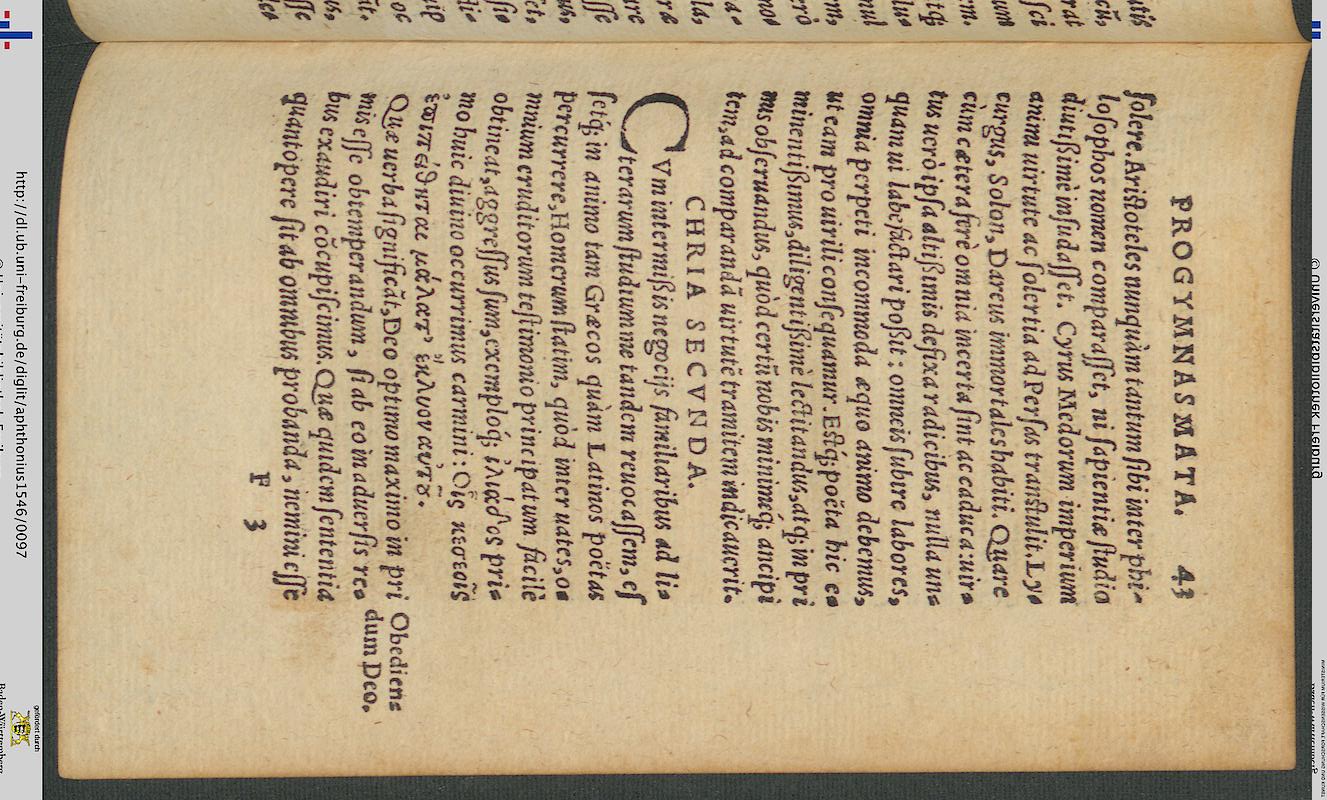 PROGYMNASMATA. 43
ſolere. Ariſtoteles nunquàm tantum ſibi inter phi-
loſophos nomen comparaſſet, ni ſapientiæ ſtudio
diutißimè inſudaſſet. Cyrus Medorum imperium
animi uirtute ac ſolertia ad Perſas tranſtulit. Ly-
curgus, Solon, Dareus immortales habiti. Quare
cùm cætera ferè omnia incerta ſint ac caduca: uir-
tus uerò ipſa altißimis defixa radicibus, nulla un-
quam ui labefactari poßit: omneis ſubire labores,
omnia perpeti incommoda æquo animo debemus,
ut eam pro uirili conſequamur. Eſtq́; poëta hic e-
minentißimus, diligentißimè lectitandus, atq; in pri
mis obſeruandus, quòd certū nobis minimeq́; ancipi
tem, ad comparandā uirtutē tramitem indicauerit.
CHRIA SECVNDA.
CVm intermißis negocijs familiaribus ad li-
terarum ſtudium me tandem reuocaſſem, eſ
ſetq́; in animo tam Græcos quàm Latinos poëtas
percurrere, Homerum ſtatim, quòd inter uates, o-
mnium eruditorum teſtimonio principatum facilè
obtineat, aggreſſus ſum, exemploq́; ἰλιάδος pri-
mo huic diuino occurrimus carmini: Οἷς κε θεοῖς
ἐπιπείθηται μάλα τ' ἔκλυον αυτοῦ.
Quæ uerba ſignificāt, Deo optimo maximo in pri
mis eſſe obtemperandum, ſi ab eo in aduerſis re-
bus exaudiri cōcupiſcimus. Quæ quidem ſententia
quantopere ſit ab omnibus probanda, nemini eſſe
Obediens
dum Deo.
F 3
http://dl.ub.uni-freiburg.de/diglit/aphthonius1546/0097
gefördert durch